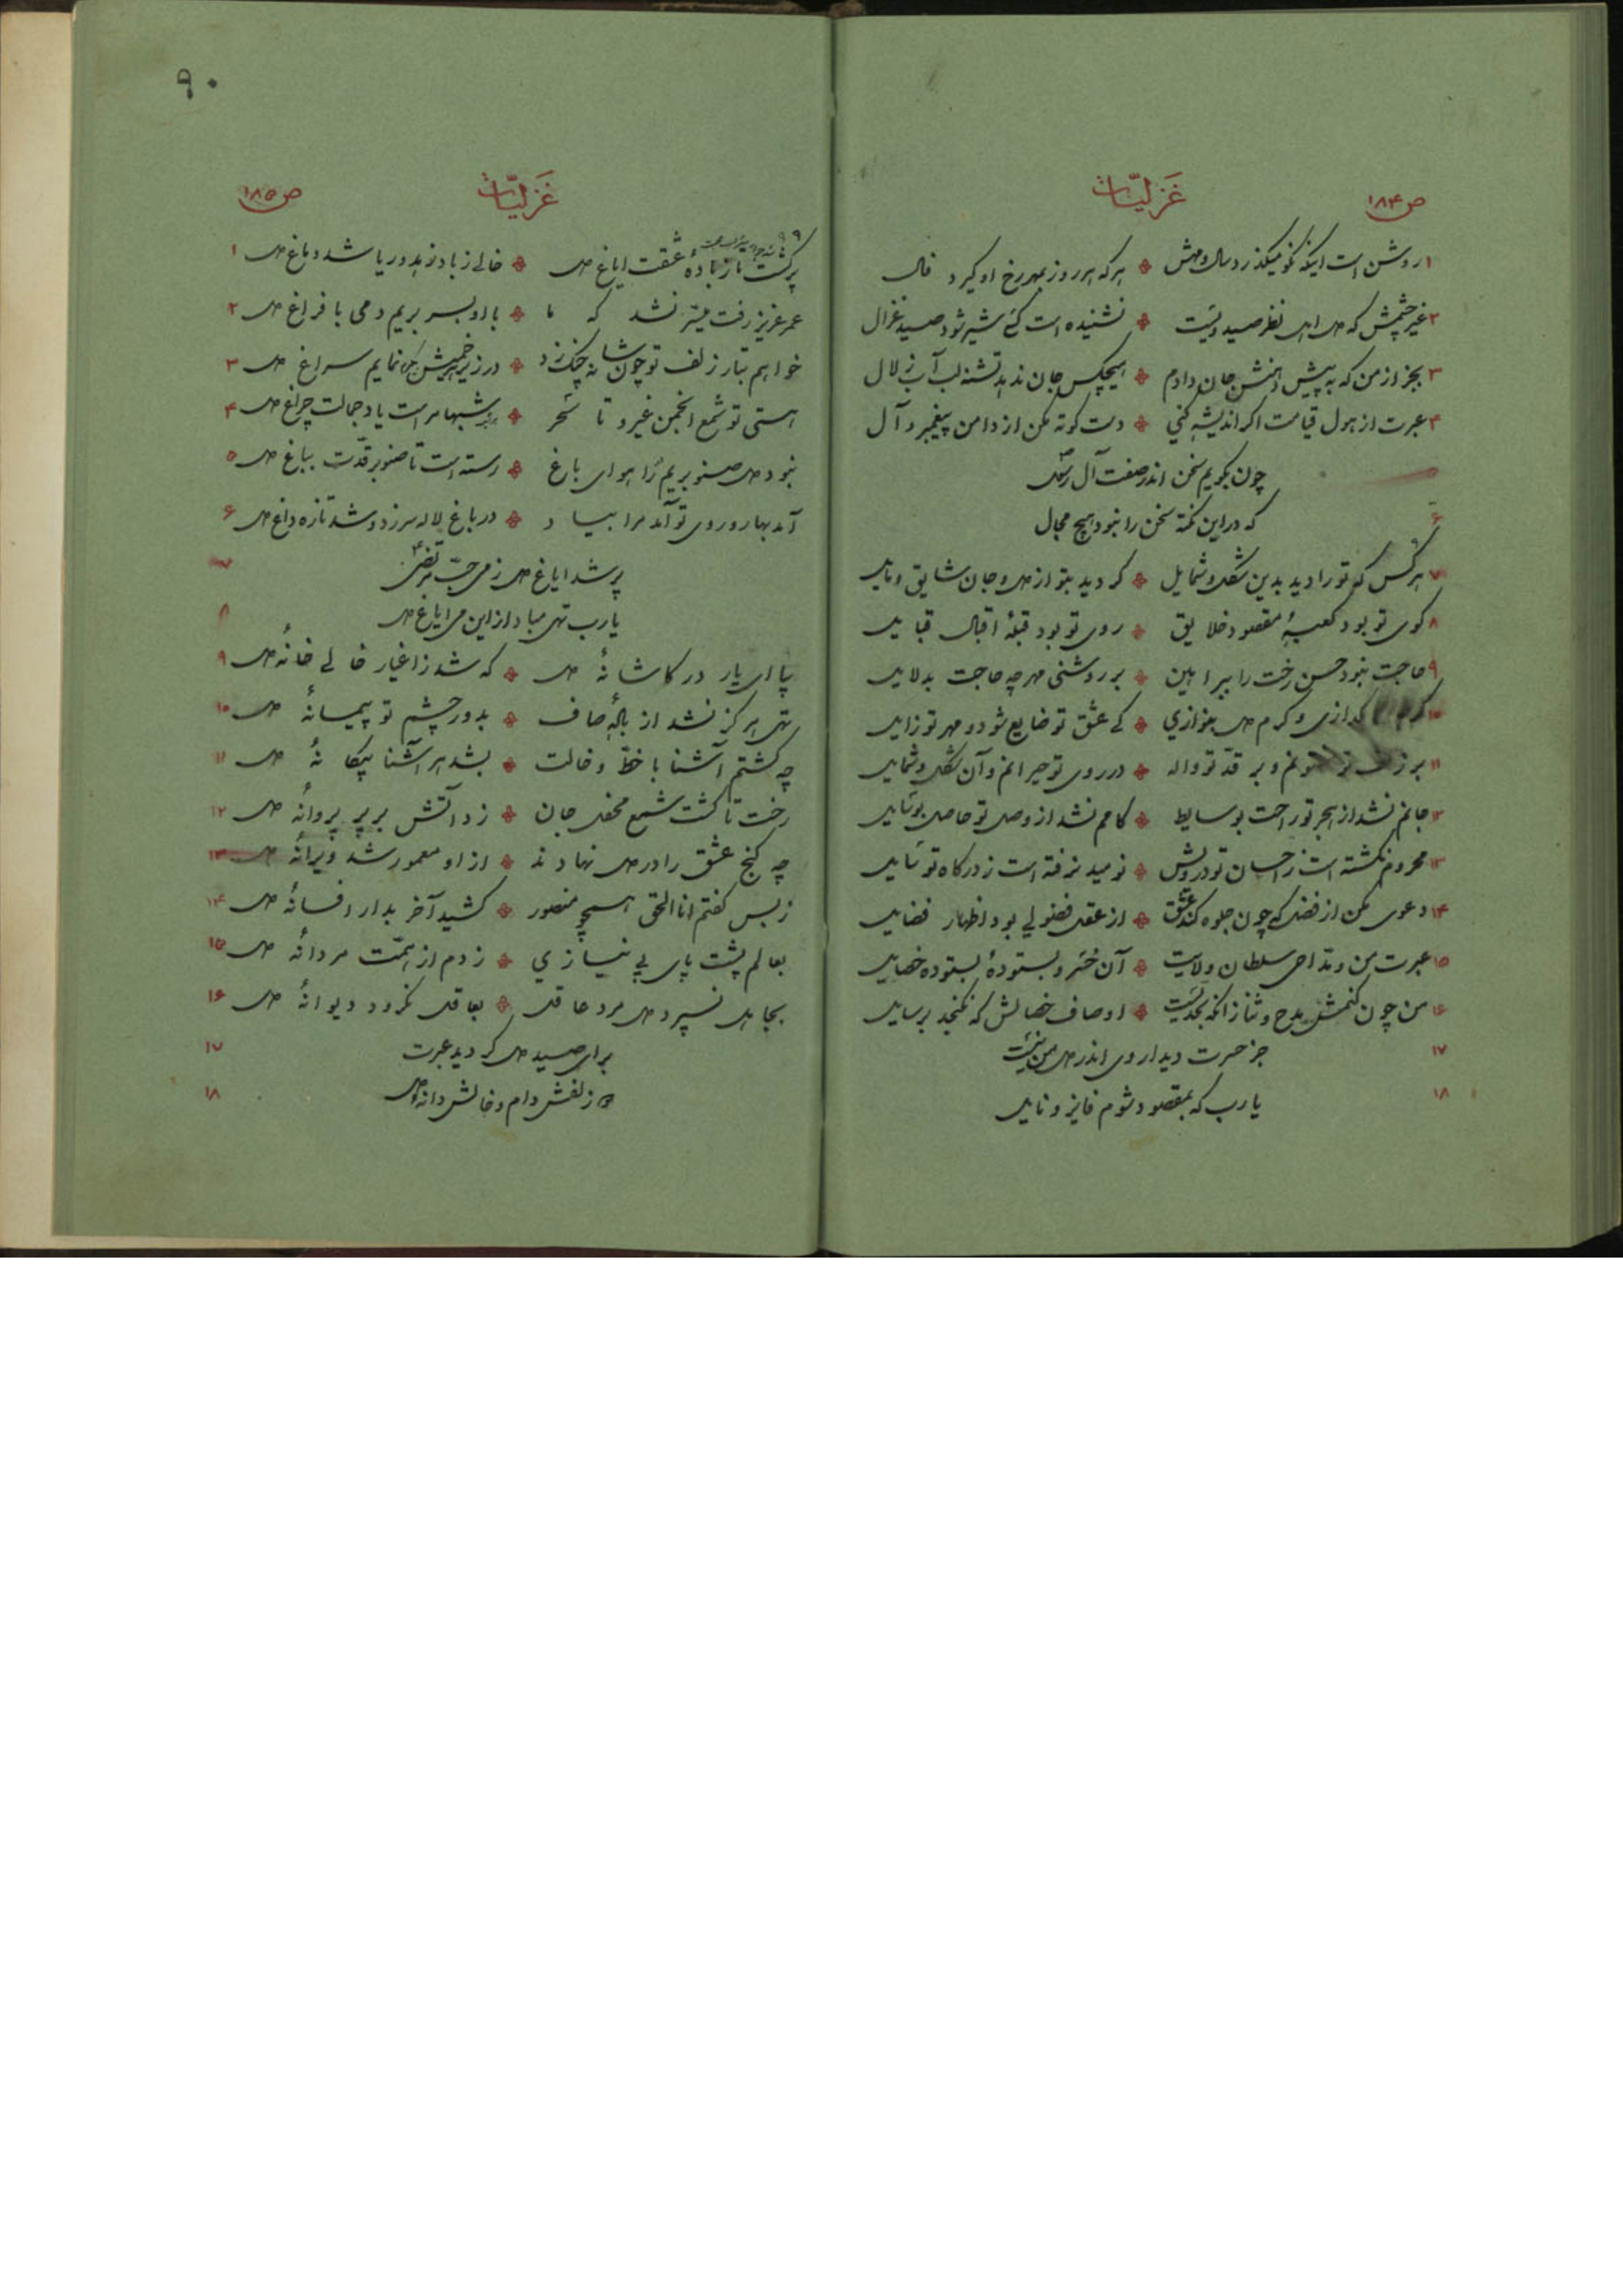 ص ۱۸۴
غزلیّات
۱ روشن است اینکه نکو میگذرد سال و مهش ٭ هرکه هر روز بمهر رخ او گیرد فال
۲ غیر چشمش که دل اهل نظر صید ویست ٭ نشنیده است کسی شیر شود صید غزال
۳ بجز از من که به پیش دهنش جان دادم ٭ هیچکس جان ندهد تشنه لب آب زلال
۴ عبرت از هول قیامت اگر اندیشه کنی ٭ دست کوته مکن از دامن پیغمبر و آل
۵ چون بگویم سخن اندر صفت آل رسول
۶ که در این نکته سخن را نبود هیچ مجال
۷ هر کس که تو را دید بدین شکل و شمایل ٭ گردید بتو از دل و جان شایق و مایل
۸ کوی تو بود کعبهٔ مقصود خلایق ٭ روی تو بود قبلهٔ اقبال قبایل
۹ حاجت نبود حسن رخت را ببراهین ٭ بر روشنی مهر چه حاجت بدلایل
۱۰ گر دل بگدازی و گرم دل بنوازی ٭ کی عشق تو ضایع شود و مهر تو زایل
۱۱ بر زلف تو مفتونم و بر قدّ تو واله ٭ در روی تو حیرانم و آن شکل و شمایل
۱۲ جانم نشد از هجر تو راحت بوسایط ٭ کامم نشد از وصل تو حاصل بوسایل
۱۳ محروم نگشته است ز احسان تو درویش ٭ نومید نرفته است ز درگاه تو سایل
۱۴ دعوی مکن از فضل که چون جلوه کند عشق ٭ از عقل فضولی بود اظهار فضایل
۱۵ عبرت من و مدّاحی سلطان ولایت ٭ آن خسرو بستودهٔ بستوده خصایل
۱۶ من چون کنمش مدح و ثنا زانکه بحدیست ٭ اوصاف خصالش که نگنجد برسایل
۱۷ جز حسرت دیدار وی اندر دل من نیست
۱۸ یارب که بمقصود شوم فایز و نایل
۹۰
غزلیّات
ص ۱۸۵
پر گشت تا ز بادهٔ عشقت ایاغ دل ٭ خالی ز باد زهد و ریا شد دماغ دل ۱
عمر عزیز رفت میسّر نشد که ما ٭ با او بسر بریم دمی با فراغ دل ۲
خواهم بتار زلف تو چون شانه چنگ زد ٭ در زیر خمیش نمایم سراغ دل ۳
هستی تو شمع انجمن غیر و تا سحر ٭ شبها مراست یاد جمالت چراغ دل ۴
نبود دل صنوبریم را هوای باغ ٭ رسته است تا صنوبر قدّت بباغ دل ۵
آمد بهار و روی تو آمد مرا بیاد ٭ در باغ لاله سر زد و شد تازه داغ دل ۶
پر شد ایاغ دل ز می حبّ مرتضی ۷
یارب تهی مباد از این می ایاغ دل ۸
بیا ای یار در کاشانهٔ دل ٭ که شد ز اغیار خالی خانهٔ دل ۹
تهی هرگز نشد از بادهٔ صاف ٭ بدور چشم تو پیمانهٔ دل ۱۰
چه گشتم آشنا با خطّ و خالت ٭ بشد هر آشنا بیگانهٔ دل ۱۱
رخت تا گشت شمع محفل جان ٭ زد آتش بر پر پروانهٔ دل ۱۲
چه گنج عشق را در دل نهادند ٭ از او معمور شد ویرانهٔ دل ۱۳
ز بس گفتم انا الحق همچو منصور ٭ کشید آخر بدار افسانهٔ دل ۱۴
بعالم پشت پای بی نیازی ٭ زدم از همّت مردانهٔ دل ۱۵
بجاهل نسپرد دل مرد عاقل ٭ بعاقل نگرود دیوانهٔ دل ۱۶
برای صید دل گردید عبرت ۱۷
زلفش دام و خالش دانهٔ دل ۱۸